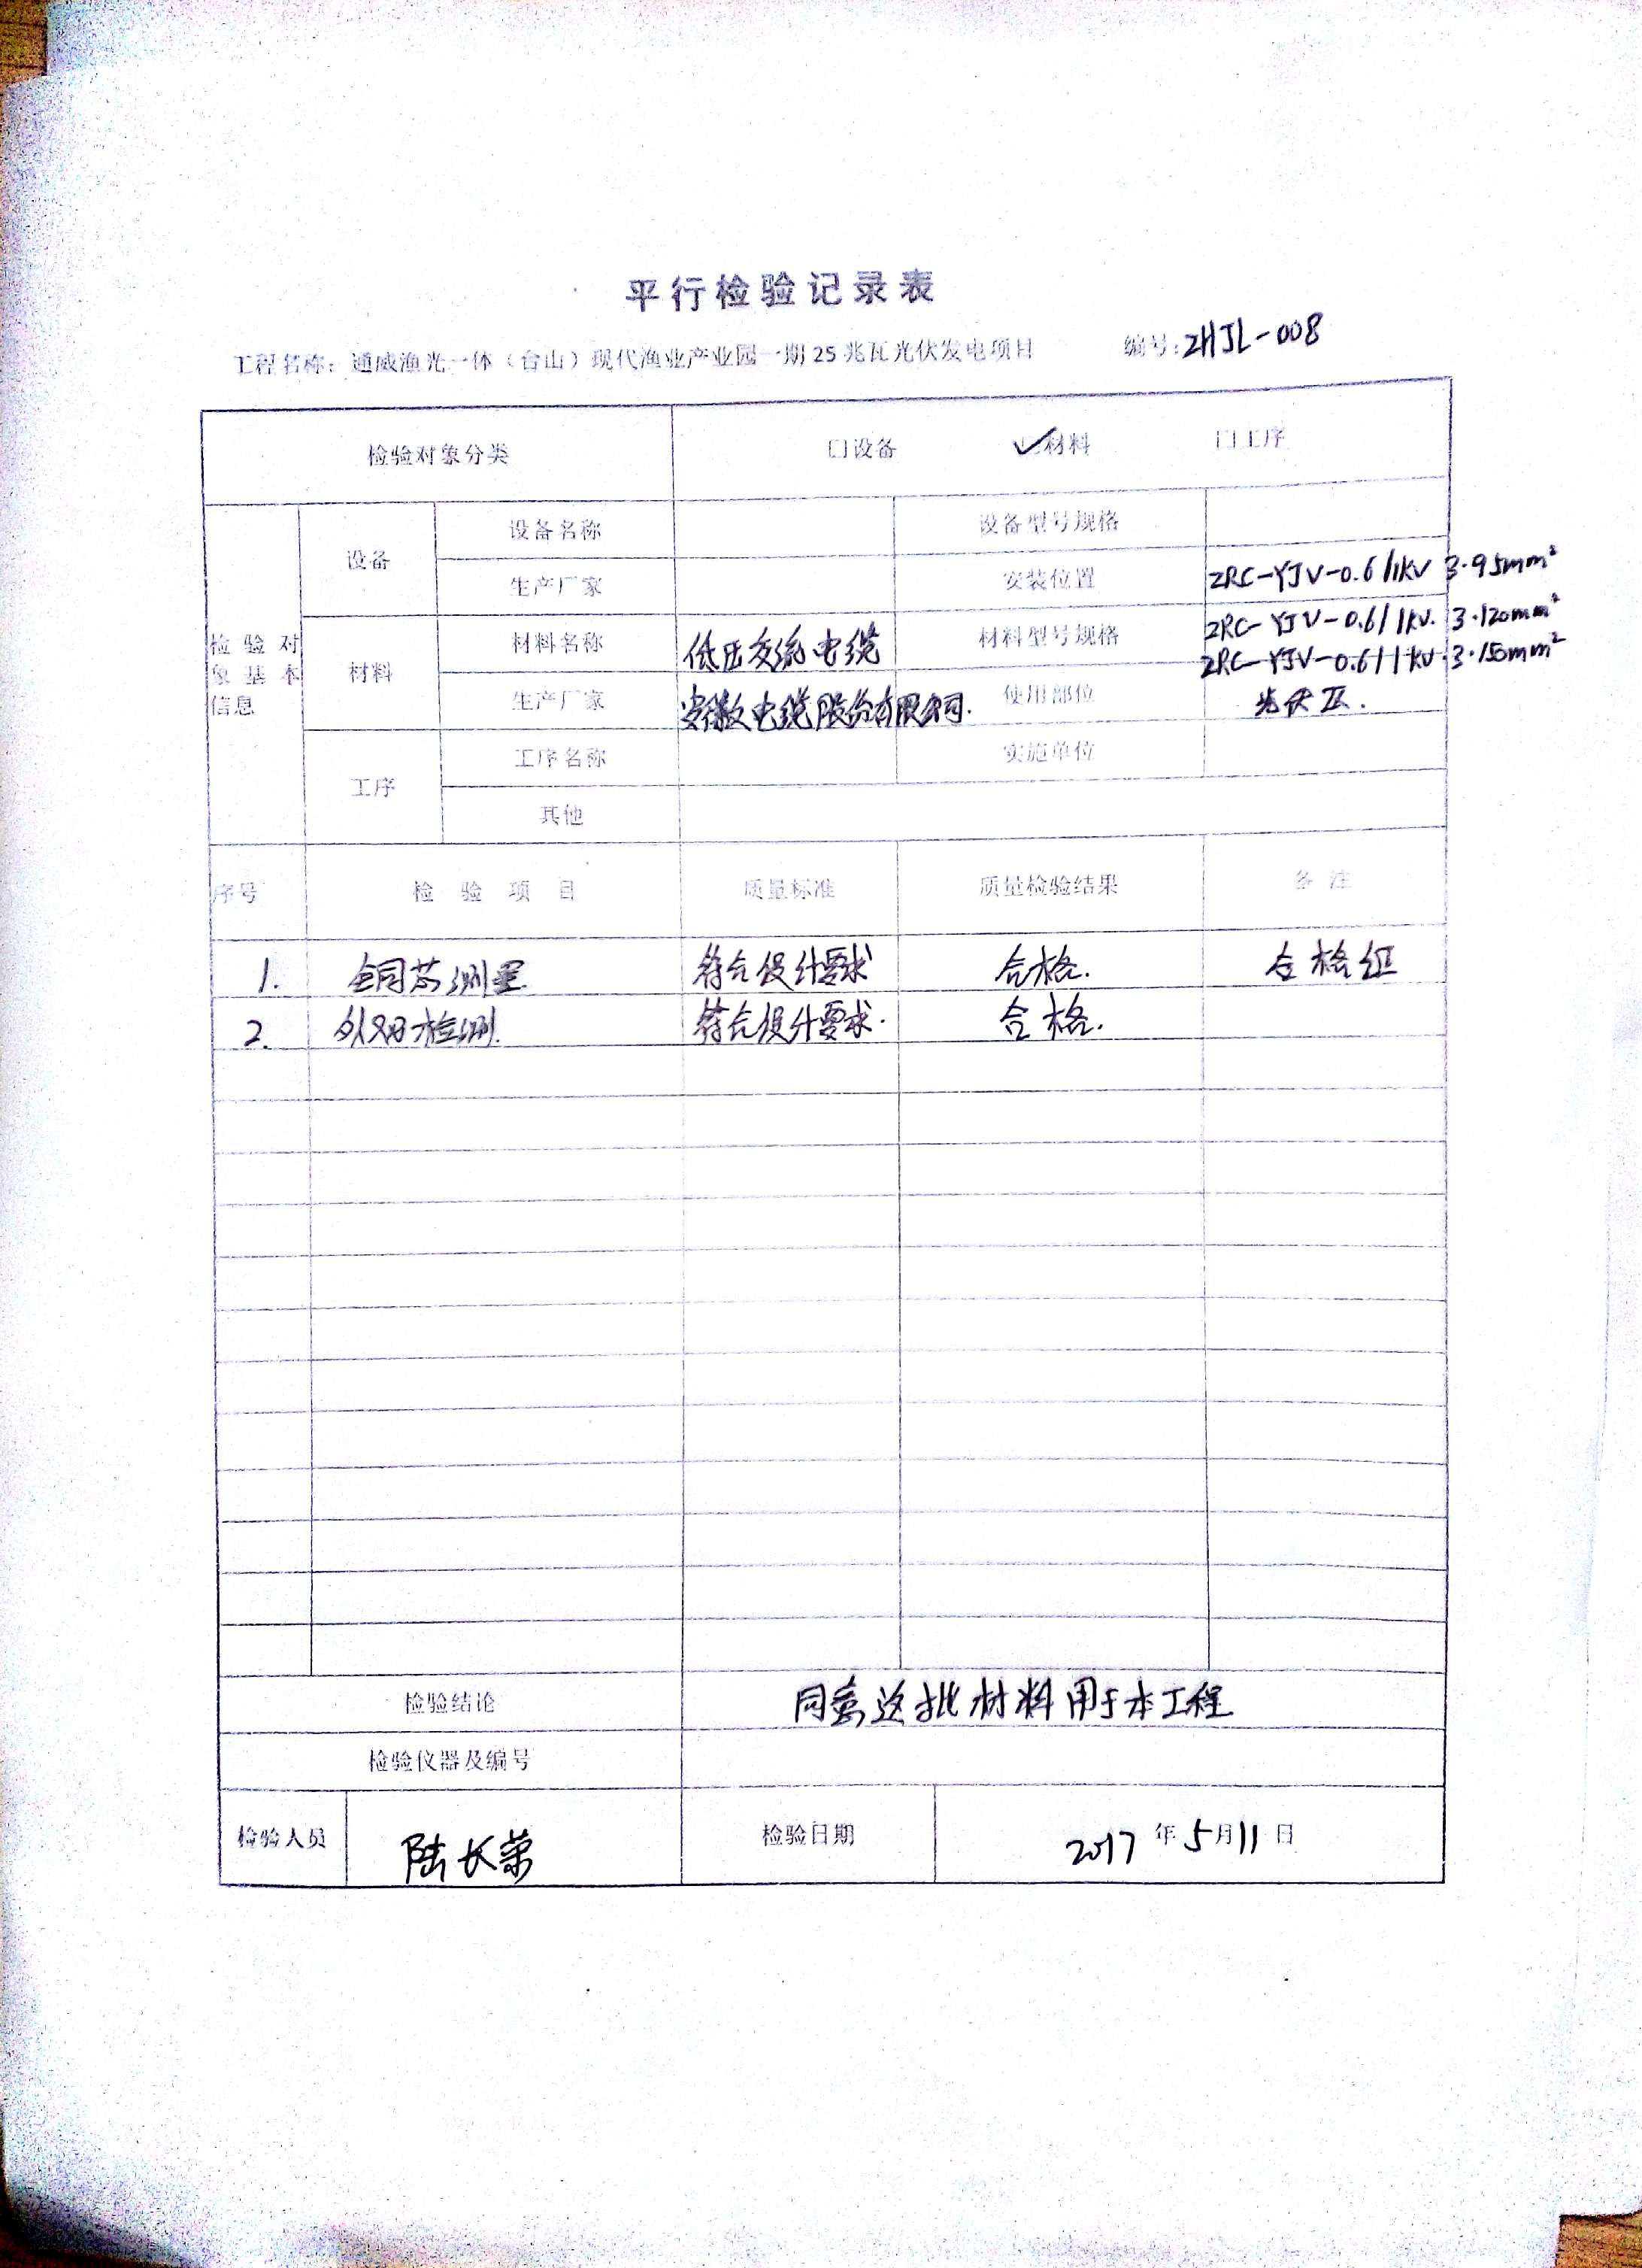 平行检验记录表
工程名称：通威渔光一体（台山）现代渔业产业园一期25兆瓦光伏发电项目 编号：ZHJL-008
检验对象分类 □设备 ✓材料 □工序
检验对象基本信息
设备 设备名称 设备型号规格
生产厂家 安装位置
ZRC-YJV-0.6/1KV 3·95mm²
ZRC-YJV-0.6/1KV·3·120mm²
ZRC-YJV-0.6/1KV·3·150mm²
材料 材料名称 低压交流电缆 材料型号规格
生产厂家 安徽电缆股份有限公司. 使用部位 光伏区.
工序 工序名称 实施单位
其他
序号 检验项目 质量标准 质量检验结果 备注
1. 铜芯测量 符合设计要求 合格. 合格证
2. 外观检测. 符合设计要求. 合格.
检验结论 同意这批材料用于本工程
检验仪器及编号
检验人员 陆长荣 检验日期 2017年5月11日